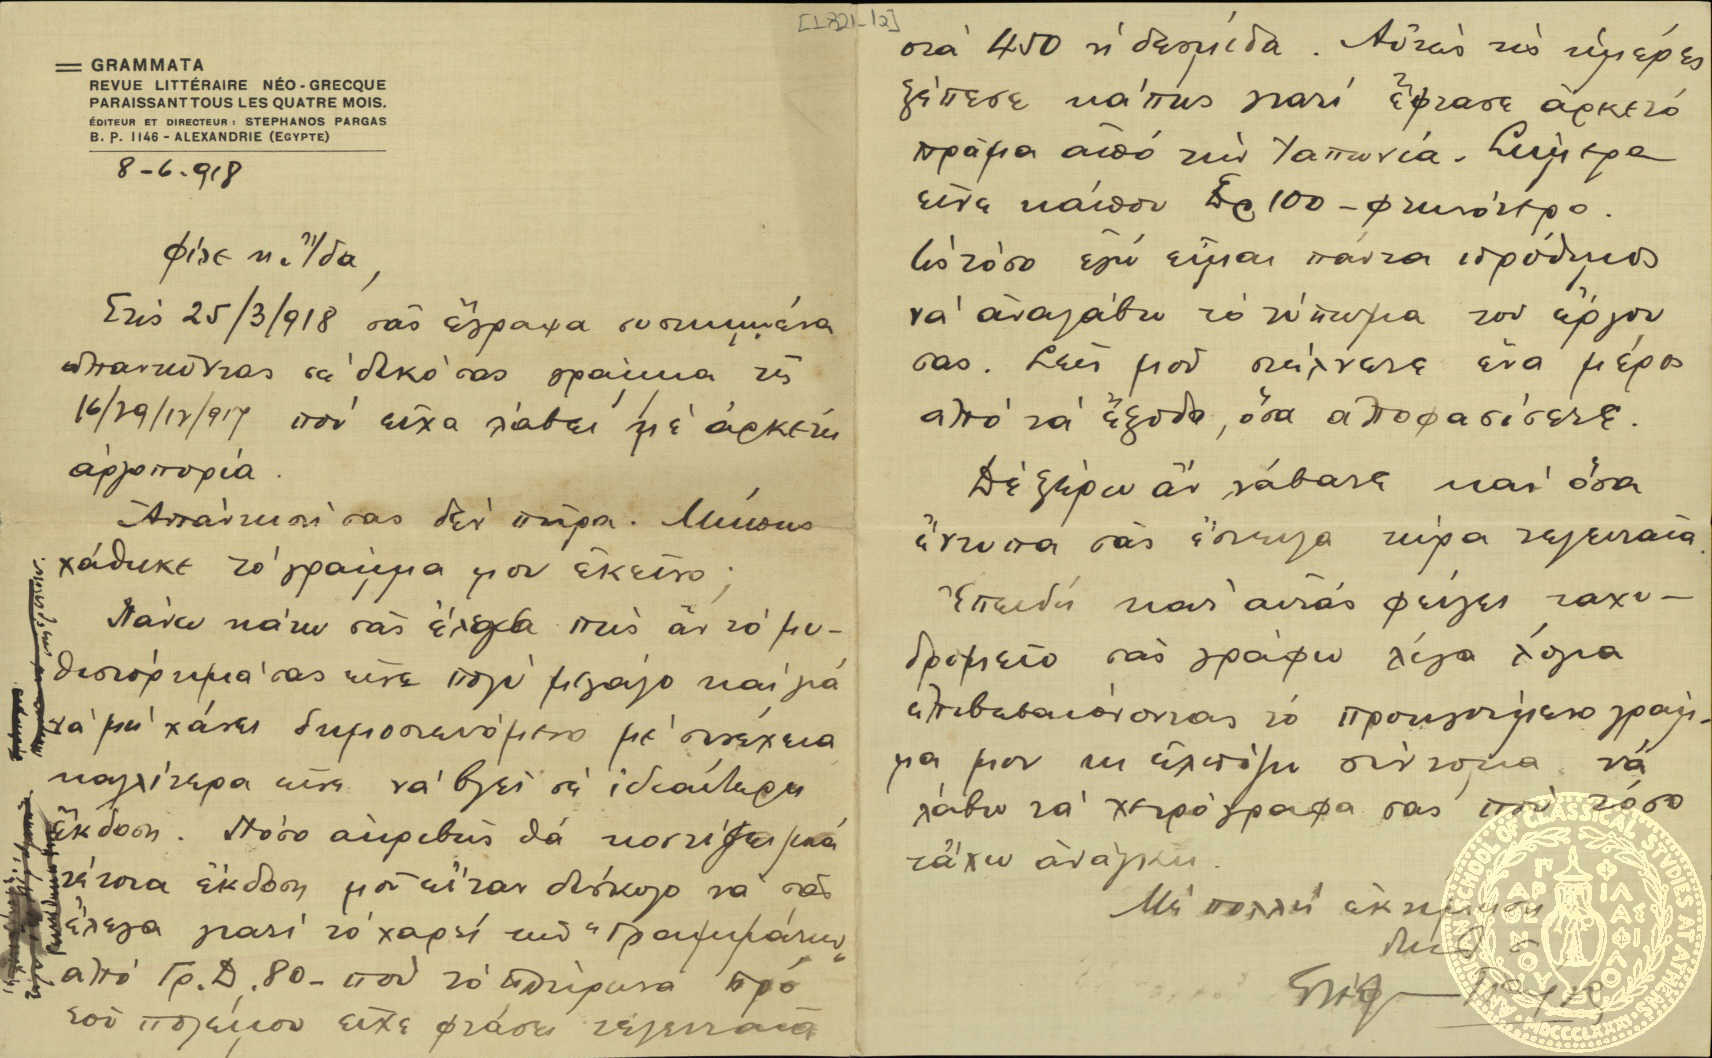 [1821-12]
GRAMMATA
REVUE LITTÉRAIRE NÉO-GRECQUE
PARAISSANT TOUS LES QUATRE MOIS.
ÉDITEUR ET DIRECTEUR: STEPHANOS PARGAS
B. P. 1146 - ALEXANDRIE (EGYPTE)
8-6-918
Φίλε κ. Ἴδα,
Στὶς 25/3/918 σᾶς ἔγραψα συστημμένα
ἀπαντῶντας σὲ δικό σας γράμμα τῆς
16/29/12/917 ποὺ εἶχα λάβει μὲ ἀρκετὴ
ἀργοπορία.
Ἀπάντησή σας δὲν πῆρα. Μήπως
χάθηκε τὸ γράμμα μου ἐκεῖνο;
Πάνω κάτω σᾶς ἔλεγα πὼς ἂν τὸ μυ-
θιστόρημά σας εἶνε πολὺ μεγάλο καὶ γιὰ
νὰ μὴ χάνει δημοσιευόμενο μὲ συνέχεια
καλλίτερα εἶνε νὰ βγεῖ σὲ ἰδιαίτερη
ἔκδοση. Πόσο ἀκριβῶς θὰ κοστίζει μιὰ
τέτοια ἔκδοση μοῦ εἴταν δύσκολο νὰ σᾶς
ἔλεγα γιατὶ τὸ χαρτὶ τῶν "Γραμμάτων"
ἀπὸ Γρ.Δ. 80- ποὺ τὸ πλήρωνα πρὸ
τοῦ πολέμου εἶχε φτάσει τελευταῖα
στὰ 450 ἡ δεσμίδα. Αὐτὲς τὶς ἡμέρες
ξέπεσε κάπως γιατὶ ἔφτασε ἀρκετὸ
πρᾶμα ἀπὸ τὴν Ἰαπωνία. Σήμερα
εἶνε κάπου 100- φτηνότερο.
Ὡς τόσο ἐγὼ εἶμαι πάντα πρόθυμος
νὰ ἀναλάβω τὸ τύπωμα τοῦ ἔργου
σας. Σεῖς μοῦ στέλνετε ἕνα μέρος
ἀπὸ τὰ ἔξοδα, ὅσα ἀποφασίσετε.
Δὲ ξέρω ἂν λάβατε καὶ ὅσα
ἔντυπα σᾶς ἔστειλα τώρα τελευταῖα.
Ἐπειδὴ κατ' αὐτὰς φεύγει ταχυ-
δρομεῖο σᾶς γράφω λίγα λόγια
ἐπιβεβαιόνοντας τὸ προηγούμενο γράμ-
μα μου κι ἐλπίζω σύντομα νὰ
λάβω τὰ χειρόγραφά σας ποὺ τόσο
τἄχω ἀνάγκη.
Μὲ πολλὴ ἐκτίμηση
δικός σας
Στέφ. Πάργας
AMERICAN SCHOOL OF CLASSICAL STUDIES AT ATHENS
MDCCCLXXXI